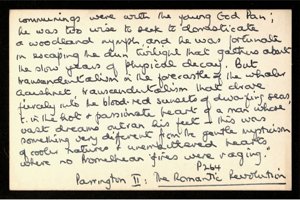 communings were with the young God Pan;
he was too wise to seek to domesticate
a woodland nymph and he was fortunate
in escaping the dun twilight that gathers about
the slow years of physical decay. But
transcendentalism in the forecastle of the whaler
Acushnet, transcendentalism that drove
fiercely into the blood-red sunsets of dwarfing seas
t. in the hot & passionate heart of a man whose
vast dreams outran his feet – this was
something very different from the gentle mysticism
of cooler natures & unembittered hearts
where no Promethean fires were raging."
P264
Parrington II: The Romantic Revolution